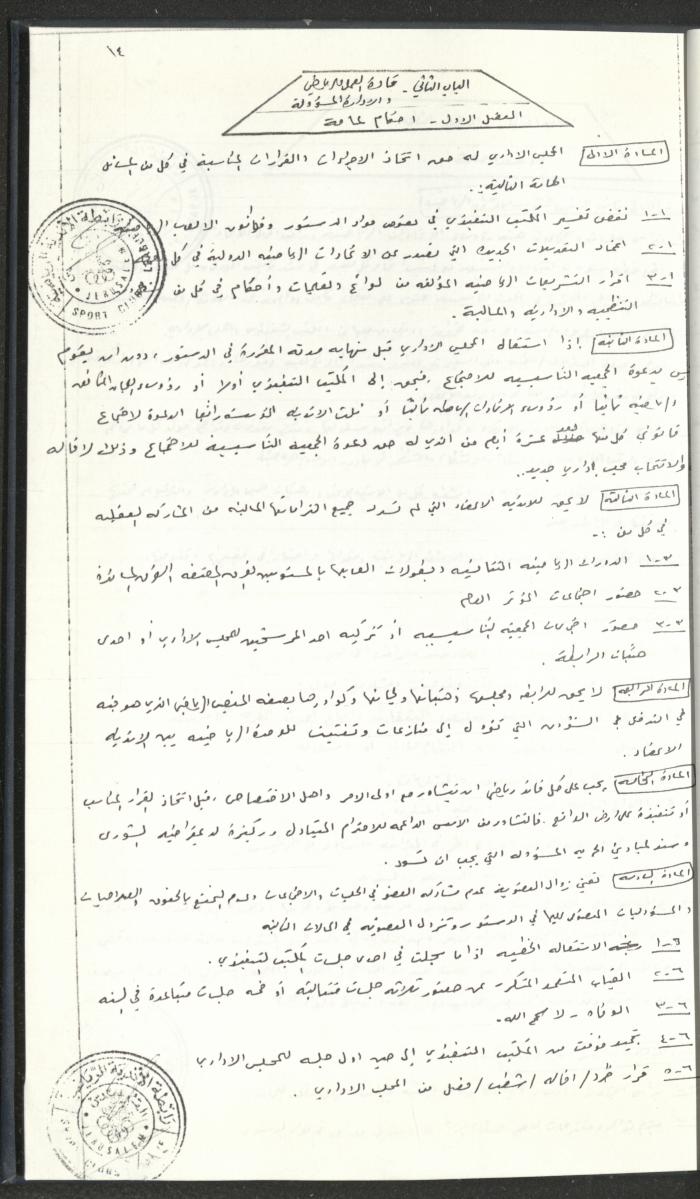 ١٤
الباب الثاني - قادة العمل الرياضي
والادارة المسؤولة
الفصل الاول - احكام عامة
المادة الاولى المجلس الاداري له حق اتخاذ الاجراءات والقرارات المناسبة في كل من المسائل
الهامة التالية :.
١-١ نقض تفسير المكتب التنفيذي في نصوص مواد الدستور وقانون الالعاب
١-٢ اعتماد التعديلات الجديدة التي تصدر عن الاتحادات الرياضية الدولية في كل
١-٣ اقرار التشريعات الرياضية المؤلفة من لوائح وتعليمات وأحكام في كل من
التنظيمية والادارية والمالية .
المادة الثانية إذا استقال المجلس الاداري قبل نهاية مدته المقررة في الدستور ، دون ان يقوم
بدعوة الجمعية التأسيسية للاجتماع ، فيحق إلى المكتب التنفيذي أولا أو رؤوساء اللجان
الرياضية ثانيا أو رؤوساء الاتحادات الرياضية ثالثا أو ثلث الاندية المؤسسة رابعا الدعوة لاجتماع
قانوني كل منها بعد عشرة أيام من الذي له حق دعوة الجمعية التأسيسية للاجتماع وذلك لاقاله
والانتخاب مجلس إداري جديد ..
المادة الثالثة لا يحق للاندية الاعضاء التي لم تسدد جميع التزاماتها المالية من المشاركة الفعلية
في كل من :-
٣-١ الدورات الرياضية التنافسية وبطولات العابها بالمستويين الفرق المصنفه الفرق الساندة
٣-٢ حضور اجتماعات المؤتر العام
٣-٣ حضور اجتماعات الجمعية التأسيسية أو تزكية احد المرشحين للمجلس الاداري أو احدى
هيئات الرابطة .
المادة الرابعة لا يحق للرابطة ومجلسها وهيئاتها ولجانها وكوادرها بصفه المنصب الرياضي الذي هو فيه
في التدخل في الشؤون التي تؤول إلى منازعات وتفتيت للوحدة الرياضية بين الاندية
الاعضاء .
المادة الخامسة يجب على كل قائد رياضي ان يتشاور مع اولي الامر واهل الاختصاص ، قبل اتخاذ القرار المناسب
أو تنفيذة على ارض الواقع . فالتشاور من الاسس الداعمه للاحترام المتبادل وركيزة لديمقراطية الشورى
وسند لمبادئ الحرية المسؤوله التي يجب ان تسود .
المادة السادسة تعني زوال العضوية عدم مشاركة العضو في الجلسات والاجتماعات وعدم التمتع بالحقوق والصلاحيات
والمسؤوليات المنصوص عليها في الدستور وتزول العضوية في الحالات التالية
٦-١ الاستقالة الخطية اذا ما سجلت في احدى جلسات المكتب التنفيذي .
٦-٢ الغياب المتعمد المتكرر عن حضور ثلاثة جلسات متتالية أو خمسة جلسات متباعدة في السنة
٦-٣ الوفاة - لا سمح الله .
٦-٤ تجميد مؤقت من المكتب التنفيذي إلى حين اول جلسه للمجلس الاداري
٦-٥ قرار طرد / اقاله / شطب / فصل من المجلس الاداري .
رابطة الأندية الرياضية
القدس
JERUSALEM
SPORT CLUBS
رابطة الأندية الرياضية
القدس
JERUSALEM
SPORT CLUBS